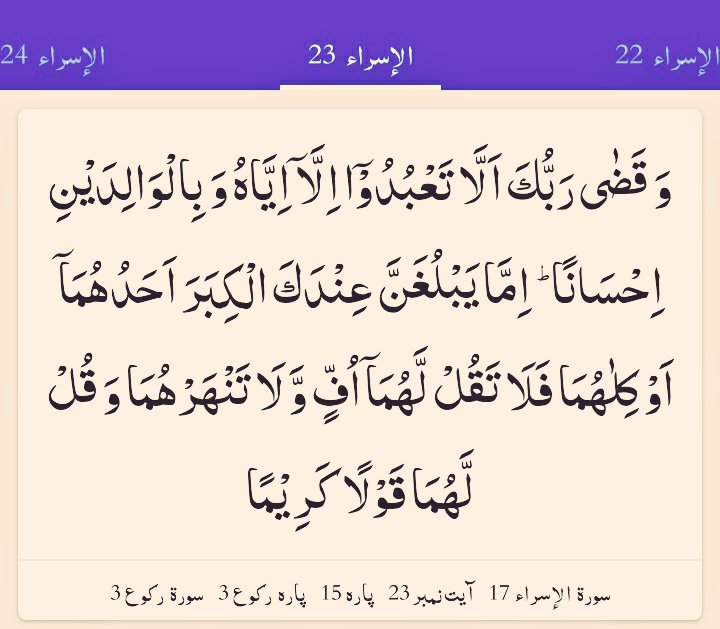 الإسراء 22
الإسراء 23
الإسراء 24
وَقَضٰى رَبُّكَ اَلَّا تَعْبُدُوْۤا اِلَّاۤ اِيَّاهُ وَبِالْوَالِدَيْنِ
اِحْسَانًا ؕ اِمَّا يَبْلُغَنَّ عِنْدَكَ الْكِبَرَ اَحَدُهُمَاۤ
اَوْ كِلٰهُمَا فَلَا تَقُلْ لَّهُمَاۤ اُفٍّ وَّلَا تَنْهَرْهُمَا وَقُلْ
لَّهُمَا قَوْلًا كَرِيْمًا
سورة الإسراء 17 آیت نمبر 23 پارہ 15 پارہ رکوع 3 سورۃ رکوع 3